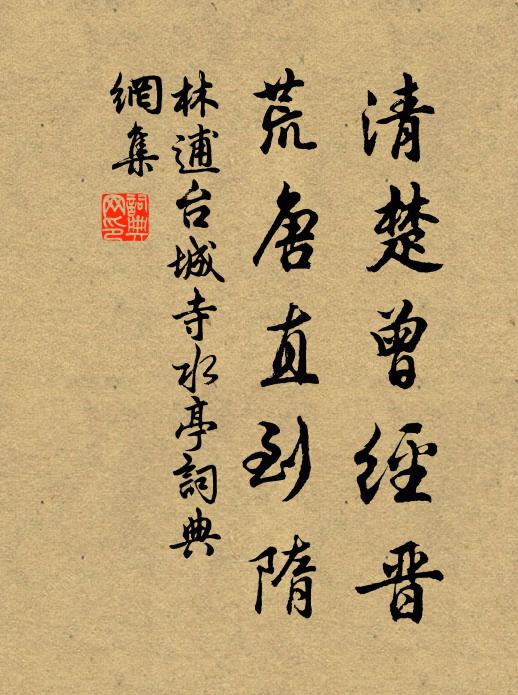 清楚曾經晋
荒唐直到隋
林逋台城寺水亭詞典
網集
詞典
网印